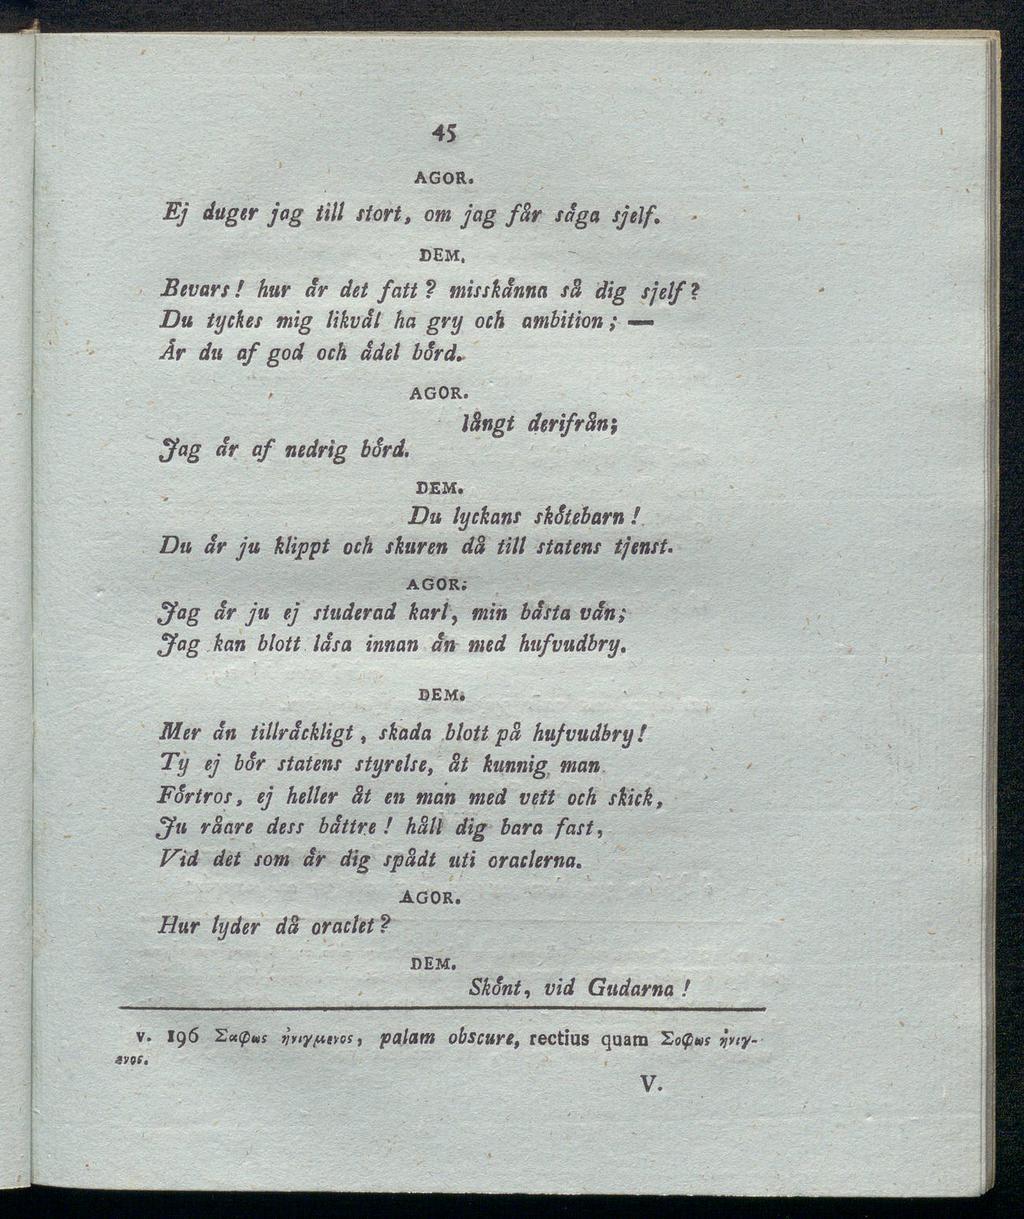 45
AGOR.
Ej duger jag till stort, om jag får såga sjelf.
DEM.
Bevars! hur år det fatt? misskånna så dig sjelf?
Du tyckes mig likvål ha gry och ambition; —
År du af god och ådel bőrd.
AGOR.
långt derifrån;
Jag år af nedrig bőrd.
DEM.
Du lyckans skőtebarn!
Du år ju klippt och skuren då till statens tjenst.
AGOR.
Jag år ju ej studerad karl, min båsta vån;
Jag kan blott låsa innan ån med hufvudbry.
DEM.
Mer ån tillråckligt, skada blott på hufvudbry!
Ty ej bőr statens styrelse, åt kunnig man
Főrtros, ej heller åt en man med vett och skick,
Ju råare dess båttre! håll dig bara fast,
Vid det som år dig spådt uti oraclerna.
AGOR.
Hur lyder då oraclet?
DEM.
Skőnt, vid Gudarna!
v. 196 Σαφως ἠνιγμενος, palam obscure, rectius quam Σοφως ἠνιγ-
ενος.
V.